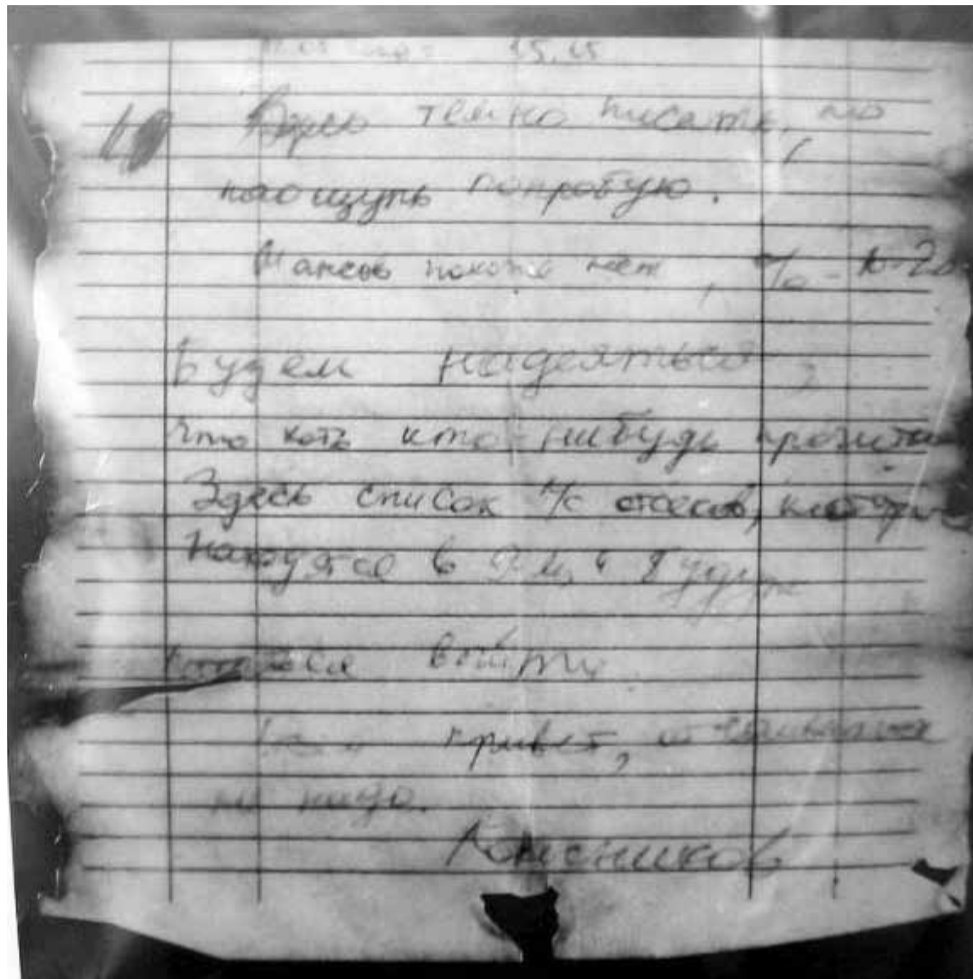 15.15
Здесь темно писать, но
наощупь попробую.
Шансов похоже нет, % 10-20
Будем надеяться,
что хоть кто-нибудь прочитает
Здесь список л/с отсеков, которые
находятся в 9-м и будут
пытаться выйти.
привет, отчаиваться
не надо.
Колесников